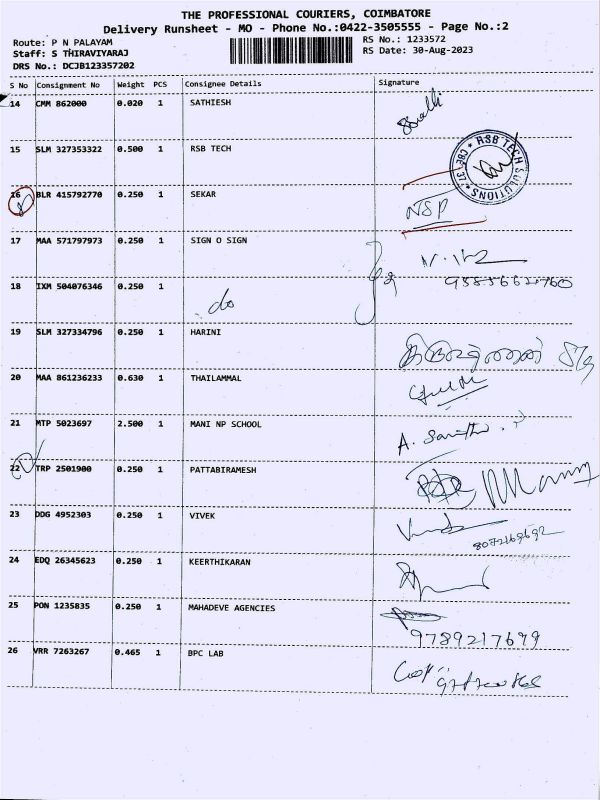 THE PROFESSIONAL COURIERS, COIMBATORE
Delivery Runsheet - MO - Phone No.:0422-3505555 - Page No.:2
Route: P N PALAYAM
Staff: S THIRAVIYARAJ
DRS No.: DCJB123357202
RS No.: 1233572
RS Date: 30-Aug-2023
S No Consignment No Weight PCS Consignee Details Signature
14 CMM 862000 0.020 1 SATHIESH
15 SLM 327353322 0.500 1 RSB TECH
RSB TECH SOLUTIONS * CBE-37 *
16 BLR 415792770 0.250 1 SEKAR NSP
17 MAA 571797973 0.250 1 SIGN O SIGN
18 IXM 504076346 0.250 1 do
19 SLM 327334796 0.250 1 HARINI
20 MAA 861236233 0.630 1 THAILAMMAL
21 MTP 5023697 2.500 1 MANI NP SCHOOL
22 TRP 2501900 0.250 1 PATTABIRAMESH
23 DDG 4952303 0.250 1 VIVEK
8072169692
24 EDQ 26345623 0.250 1 KEERTHIKARAN
25 PON 1235835 0.250 1 MAHADEVE AGENCIES
9789217699
26 VRR 7263267 0.465 1 BPC LAB